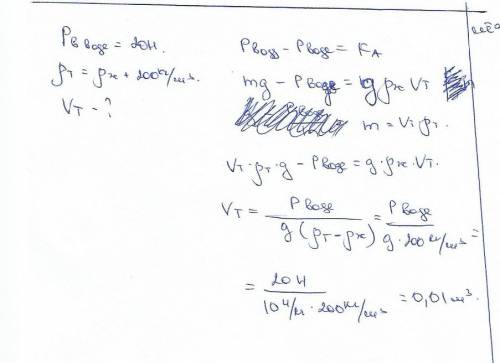 P в воде = 20Н.
ρт = ρж + 200 кг/м³.
Vт - ?
Pвозд - Pводе = FА
mg - Pводе = g ρж Vт
m = Vт ρт.
Vт · ρт · g - Pводе = g · ρж · Vт.
Vт = Pводе / g (ρт - ρж) = Pводе / g · 200 кг/м³ =
= 20Н / 10 Н/кг · 200 кг/м³ = 0,01 м³.